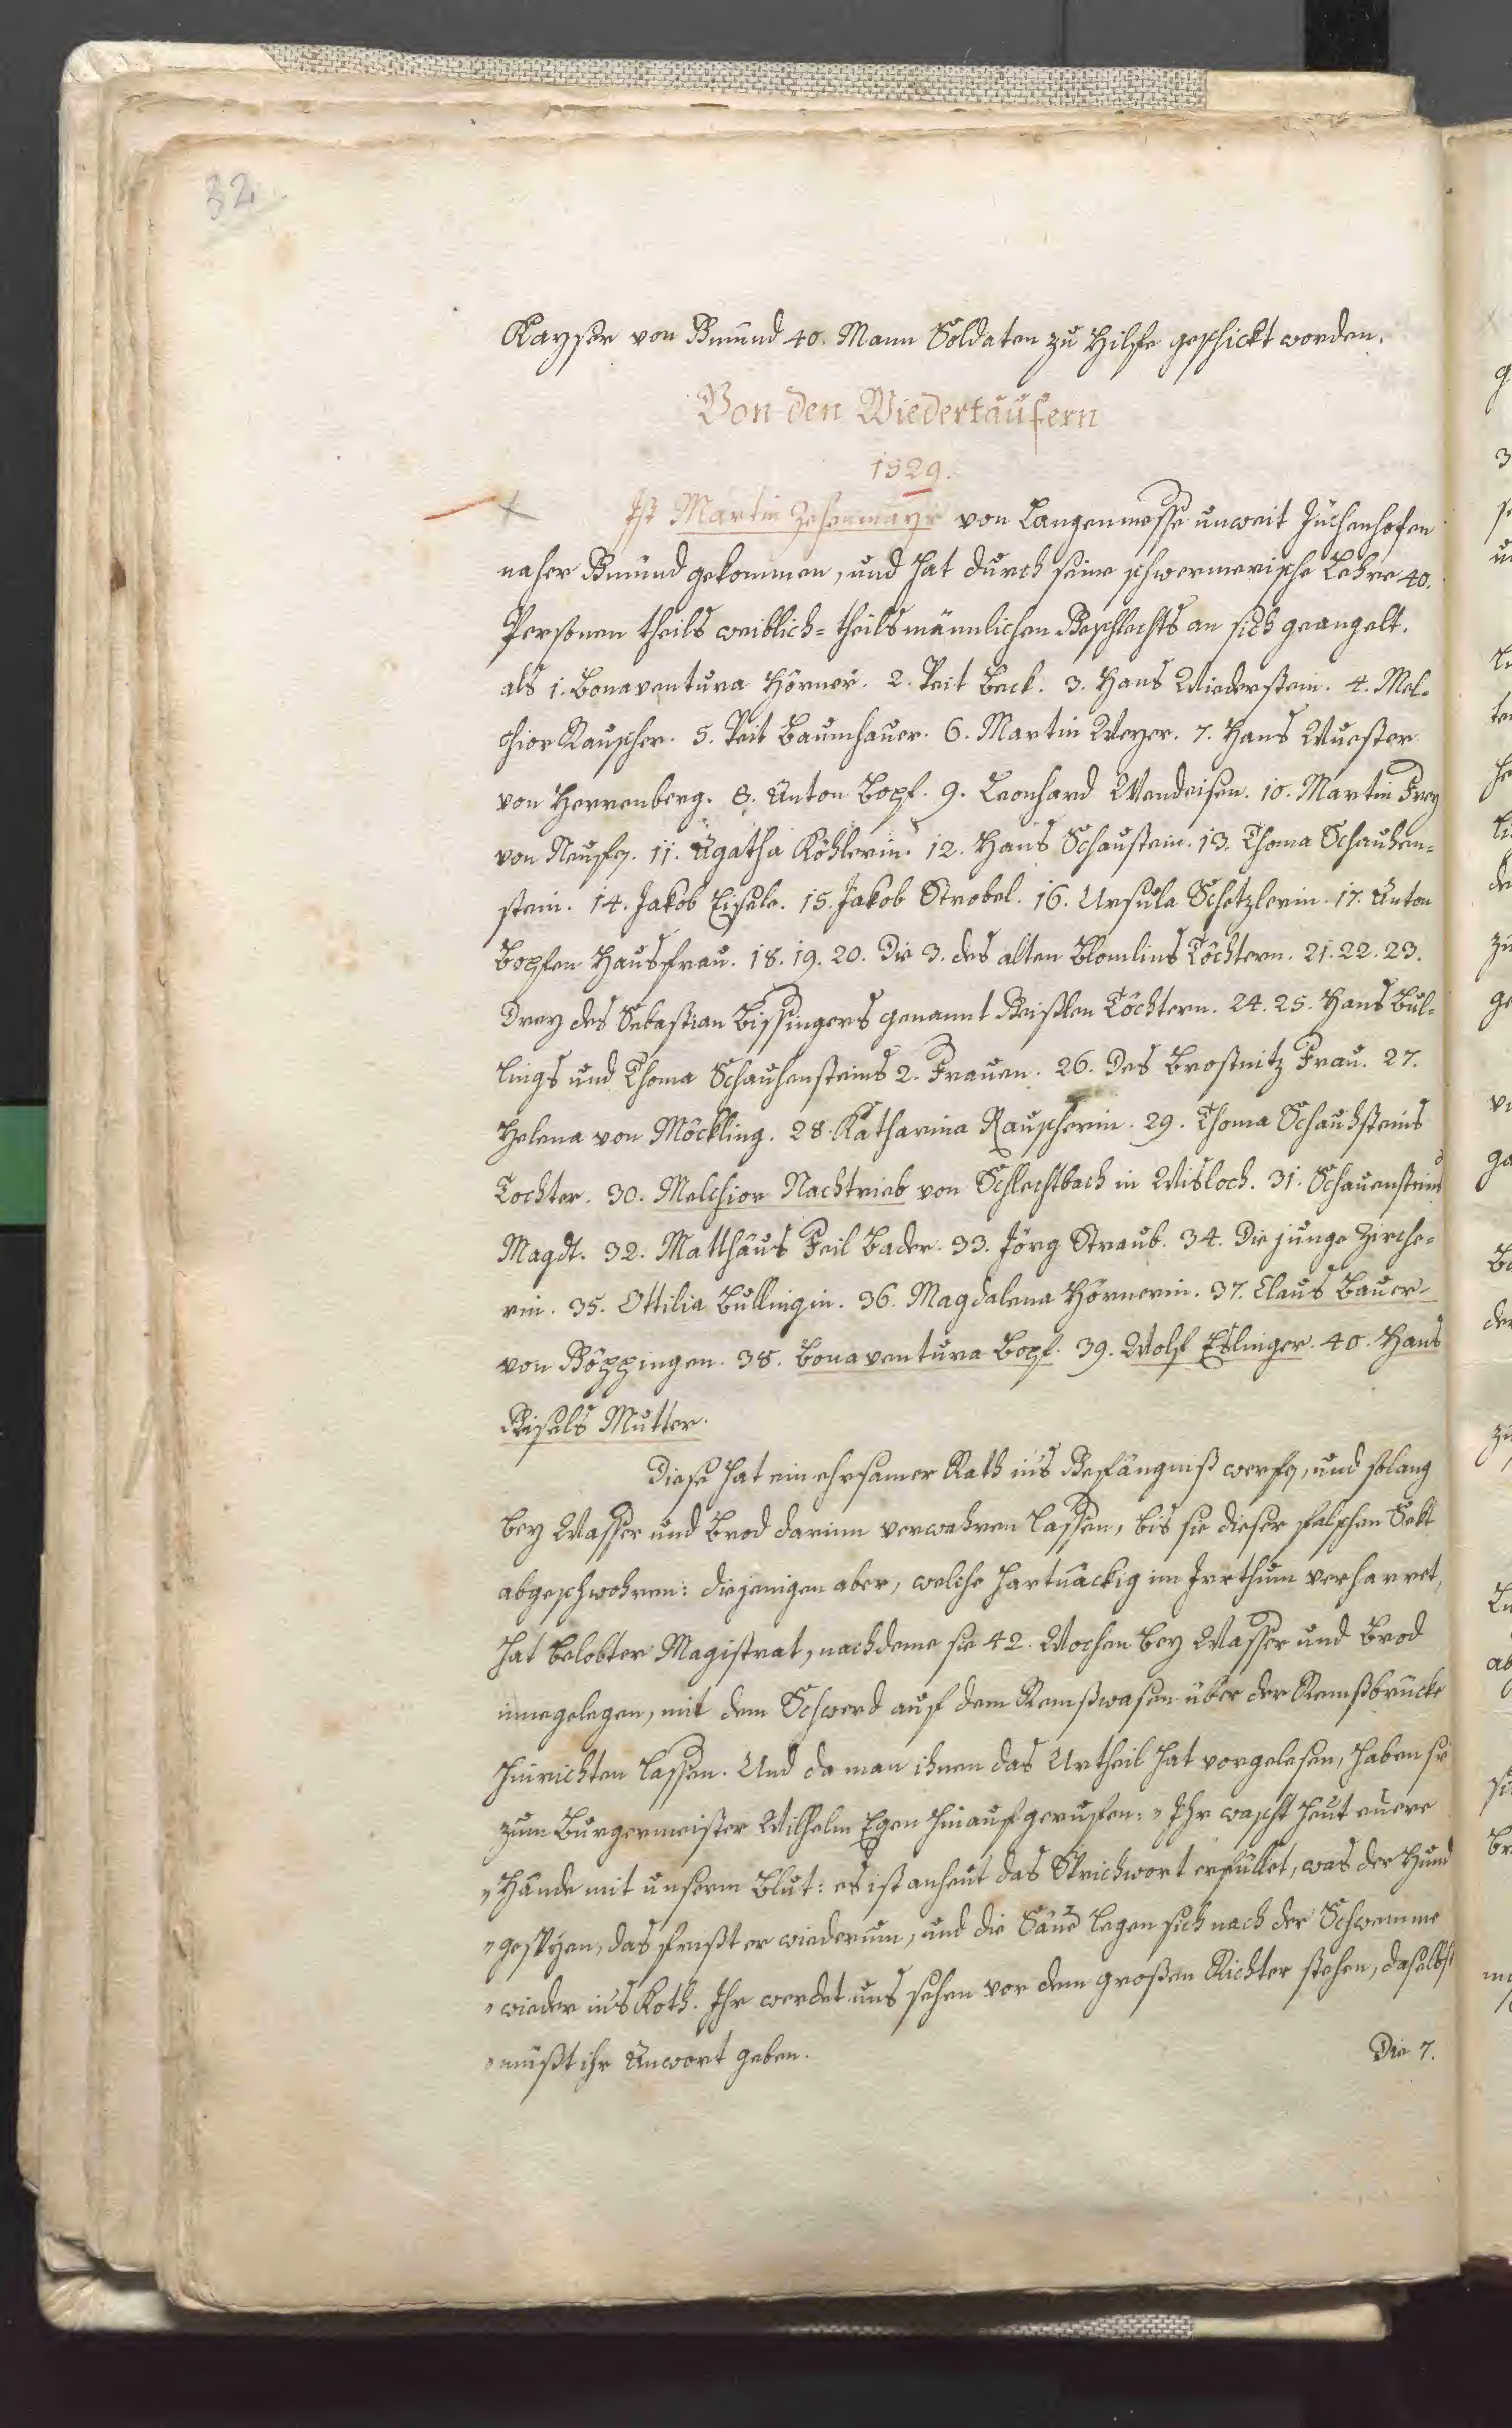 32
Kayser von Gmünd 40. Mann Soldaten zu Hilfe geschickt worden.
Von den Wiedertäufern
1529.
Ist Martin Zehenmayr von Langenmosse unweit Jüchenhofen
naher Gmünd gekommen, und hat durch seine schwermerische Lehre 40.
Personen theils weiblich= theils männlichen Geschlechts an sich geangelt.
als 1. Bonaventura Hörner. 2. Veit Beck. 3. Hans Wiederstein. 4. Mel=
chior Rauscher. 5. Veit Baumhauer. 6. Martin Meyer. 7. Hans Wuester
von Herrenberg. 8. Anton Bopf. 9. Leonhard Wendeisen. 10. Martin Frey
von Neuffen. 11. Agatha Köhlerin. 12. Hans Schaustein. 13. Thoma Schauhen=
stein. 14. Jakob Eisele. 15. Jakob Strobel. 16. Ursula Schetzlerin. 17. Anton
Bopfen Hausfrau. 18. 19. 20. Die 3. des alten Blomlins Töchtern. 21. 22. 23.
Drey des Sebastian Bissingers genannt Geißlen Töchtern. 24. 25. Hans Bul=
lings und Thoma Schauhensteins 2. Frauen. 26. Des Brosnitz Frau. 27.
Helena von Möckling. 28. Katharina Rauscherin. 29. Thoma Schauhsteins
Tochter. 30. Melchior Nachtrieb von Schlechtbach in Wisloch. 31. Schauensteins
Magdt. 32. Matthäus Feil Bader. 33. Jörg Straub. 34. Die junge Zirche=
rin. 35. Ottilia Bullingin. 36. Magdalena Hörnerin. 37. Claus Bauer
von Böppingen. 38. Bonaventura Bopf. 39. Wolf Eslinger. 40. Hans
Giselds Mutter.
Diese hat ein ehrsamer Rath in's Gefängniß werfen, und solang
bey Wasser und Brod darinn verwahren lassen, bis sie dieser falschen Sekt
abgeschwohren: diejenigen aber, welche hartnäckig im Irrthum verharret,
hat belobter Magistrat, nachdeme sie 42. Wochen bey Wasser und Brod
innegelegen, mit dem Schwerd auf dem Remßwasen über der Remßbrücke
hinrichten lassen. Und da man ihnen das Urtheil hat vorgelesen, haben sie
zum Burgermeister Wilhelm Egen hinaufgeruffen: „Ihr wascht heut euere
„Hände mit unserm Blut: es ist anheut das Sprichwort erfüllet, was der Hund
„gespyen, das frißt er wiederum, und die Säue legen sich nach der Schwemme
„wieder in's Koth. Ihr werdet uns sehen vor dem großen Richter stehen, daselbst
„müßt ihr Anwort geben.
Die 7.